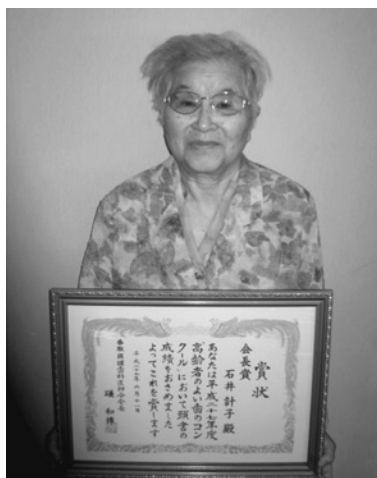 賞状
会長賞
石井計子殿
あなたは平成二十七年度
高齢者のよい歯のコン
クールにおいて頭書の
成績をおさめました
よってこれを賞します
平成二十七年六月十一日